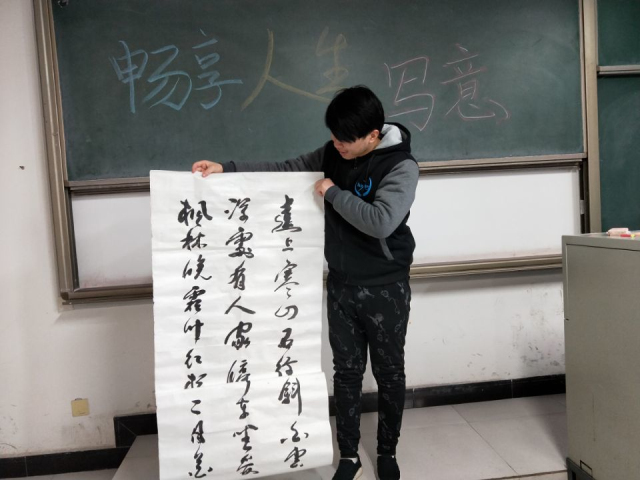 畅享人生 写意
远上寒山石径斜白雲
深處有人家停车坐爱
枫林晚霜叶红於二月花